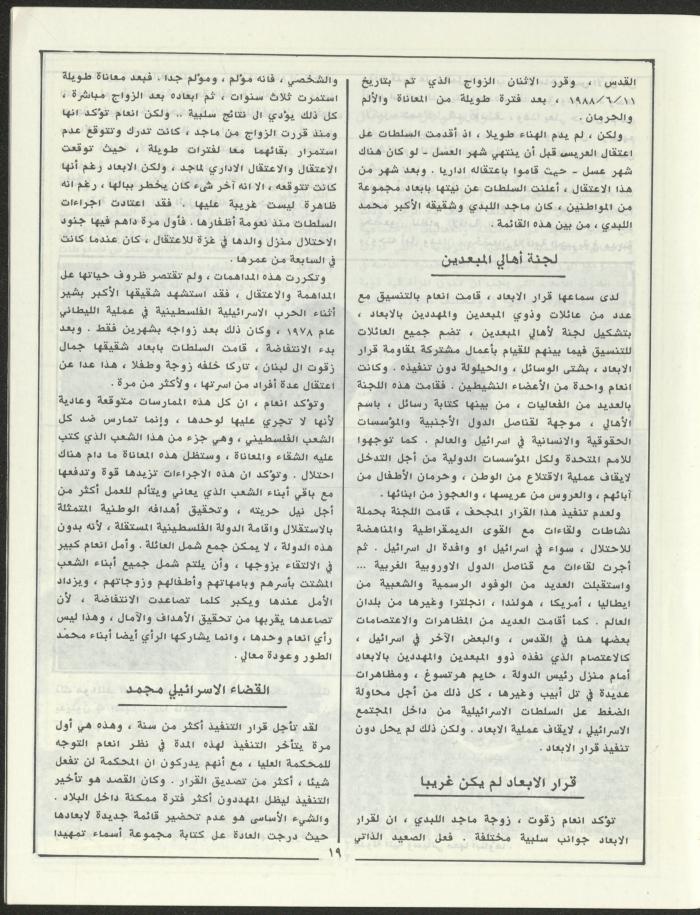 القدس ، وقرر الاثنان الزواج الذي تم بتاريخ
١٩٨٨/٦/١١ ، بعد فترة طويلة من المعاناة والألم
والحرمان .
ولكن ، لم يدم الهناء طويلا ، اذ أقدمت السلطات على
اعتقال العريس قبل أن ينتهي شهر العسل ـ لو كان هناك
شهر عسل ـ حيث قاموا باعتقاله اداريا . وبعد شهر من
هذا الاعتقال ، أعلنت السلطات عن نيتها بابعاد مجموعة
من المواطنين ، كان ماجد اللبدي وشقيقه الأكبر محمد
اللبدي ، من بين هذه القائمة .
لجنة أهالي المبعدين
لدى سماعها قرار الابعاد ، قامت انعام بالتنسيق مع
عدد من عائلات وذوي المبعدين والمهددين بالابعاد ،
بتشكيل لجنة لأهالي المبعدين ، تضم جميع العائلات
للتنسيق فيما بينهم للقيام بأعمال مشتركة لمقاومة قرار
الابعاد ، بشتى الوسائل ، والحيلولة دون تنفيذه . وكانت
انعام واحدة من الأعضاء النشيطين . فقامت هذه اللجنة
بالعديد من الفعاليات ، من بينها كتابة رسائل ، باسم
الأهالي ، موجهة لقناصل الدول الأجنبية والمؤسسات
الحقوقية والانسانية في اسرائيل والعالم . كما توجهوا
للامم المتحدة ولكل المؤسسات الدولية من أجل التدخل
لايقاف عملية الاقتلاع من الوطن ، وحرمان الأطفال من
آبائهم ، والعروس من عريسها ، والعجوز من ابنائها .
ولعدم تنفيذ هذا القرار المجحف ، قامت اللجنة بحملة
نشاطات ولقاءات مع القوى الديمقراطية والمناهضة
للاحتلال ، سواء في اسرائيل او وافدة ال اسرائيل . ثم
أجرت لقاءات مع قناصل الدول الاوروبية الغربية ...
واستقبلت العديد من الوفود الرسمية والشعبية من
ايطاليا ، أمريكا ، هولندا ، انجلترا وغيرها من بلدان
العالم . كما أقامت العديد من المظاهرات والاعتصامات
بعضها هنا في القدس ، والبعض الآخر في اسرائيل ،
كالاعتصام الذي نفذه ذوو المبعدين والمهددين بالابعاد
أمام منزل رئيس الدولة ، حايم هرتسوغ ، ومظاهرات
عديدة في تل أبيب وغيرها ، كل ذلك من أجل محاولة
الضغط على السلطات الاسرائيلية من داخل المجتمع
الاسرائيلي ، لايقاف عملية الابعاد . ولكن ذلك لم يحل دون
تنفيذ قرار الابعاد .
قرار الابعاد لم يكن غريبا
تؤكد انعام زقوت ، زوجة ماجد اللبدي ، ان لقرار
الابعاد جوانب سلبية مختلفة . فعلى الصعيد الذاتي
والشخصي ، فانه مؤلم ، ومؤلم جدا . فبعد معاناة طويلة
استمرت ثلاث سنوات ، ثم ابعاده بعد الزواج مباشرة ،
كل ذلك يؤدي ال نتائج سلبية .. ولكن انعام تؤكد انها
ومنذ قررت الزواج من ماجد ، كانت تدرك وتتوقع عدم
استمرار بقائهما معا لفترات طويلة ، حيث توقعت
الاعتقال والاعتقال الاداري لماجد ، ولكن الابعاد رغم أنها
كانت تتوقعه ، الا انه آخر شيء كان يخطر ببالها ، رغم انه
ظاهرة ليست غريبة عليها . فقد اعتادت اجراءات
السلطات منذ نعومة أظفارها . فأول مرة داهم فيها جنود
الاحتلال منزل والدها في غزة للاعتقال ، كان عندما كانت
في السابعة من عمرها .
وتكررت هذه المداهمات ، ولم تقتصر ظروف حياتها على
المداهمة والاعتقال ، فقد استشهد شقيقها الأكبر بشير
أثناء الحرب الاسرائيلية الفلسطينية في عملية الليطاني
عام ١٩٧٨ ، وكان ذلك بعد زواجه بشهرين فقط . وبعد
بدء الانتفاضة ، قامت السلطات بابعاد شقيقها جمال
زقوت ال لبنان ، تاركا خلفه زوجة وطفلا ، هذا عدا عن
اعتقال عدة أفراد من اسرتها ، ولأكثر من مرة .
وتؤكد انعام ، ان كل هذه الممارسات متوقعة وعادية
لأنها لا تجري عليها لوحدها ، وإنما تمارس ضد كل
الشعب الفلسطيني ، وهي جزء من هذا الشعب الذي كتب
عليه الشقاء والمعاناة ، وستظل هذه المعاناة ما دام هناك
احتلال . وتؤكد ان هذه الاجراءات تزيدها قوة وتدفعها
مع باقي أبناء الشعب الذي يعاني ويتألم للعمل أكثر من
أجل نيل حريته ، وتحقيق أهدافه الوطنية المتمثلة
بالاستقلال واقامة الدولة الفلسطينية المستقلة ، لأنه بدون
هذه الدولة ، لا يمكن جمع شمل العائلة . وأمل انعام كبير
في الالتقاء بزوجها ، وأن يلتم شمل جميع أبناء الشعب
المشتت بأسرهم وبامهاتهم وأطفالهم وزوجاتهم ، ويزداد
الأمل عندها ويكبر كلما تصاعدت الانتفاضة ، لأن
تصاعدها يقربها من تحقيق الأهداف والآمال ، وهذا ليس
رأي انعام وحدها ، وانما يشاركها الرأي أيضا أبناء محمد
الطور وعودة معالي .
القضاء الاسرائيلي مجمد
لقد تأجل قرار التنفيذ أكثر من سنة ، وهذه هي أول
مرة يتأخر التنفيذ لهذه المدة في نظر انعام التوجه
للمحكمة العليا ، مع أنهم يدركون ان المحكمة لن تفعل
شيئا ، أكثر من تصديق القرار . وكان القصد هو تأخير
التنفيذ ليظل المهددون أكثر فترة ممكنة داخل البلاد .
والشيء الأساسي هو عدم تحضير قائمة جديدة لابعادها
حيث درجت العادة على كتابة مجموعة أسماء تمهيدا
١٩